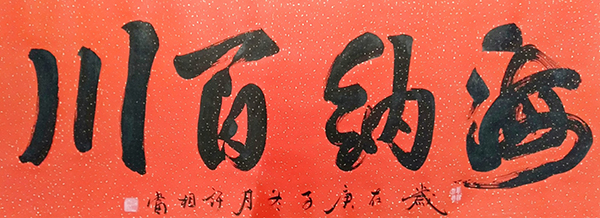 海纳百川
岁在庚子冬月许相甫